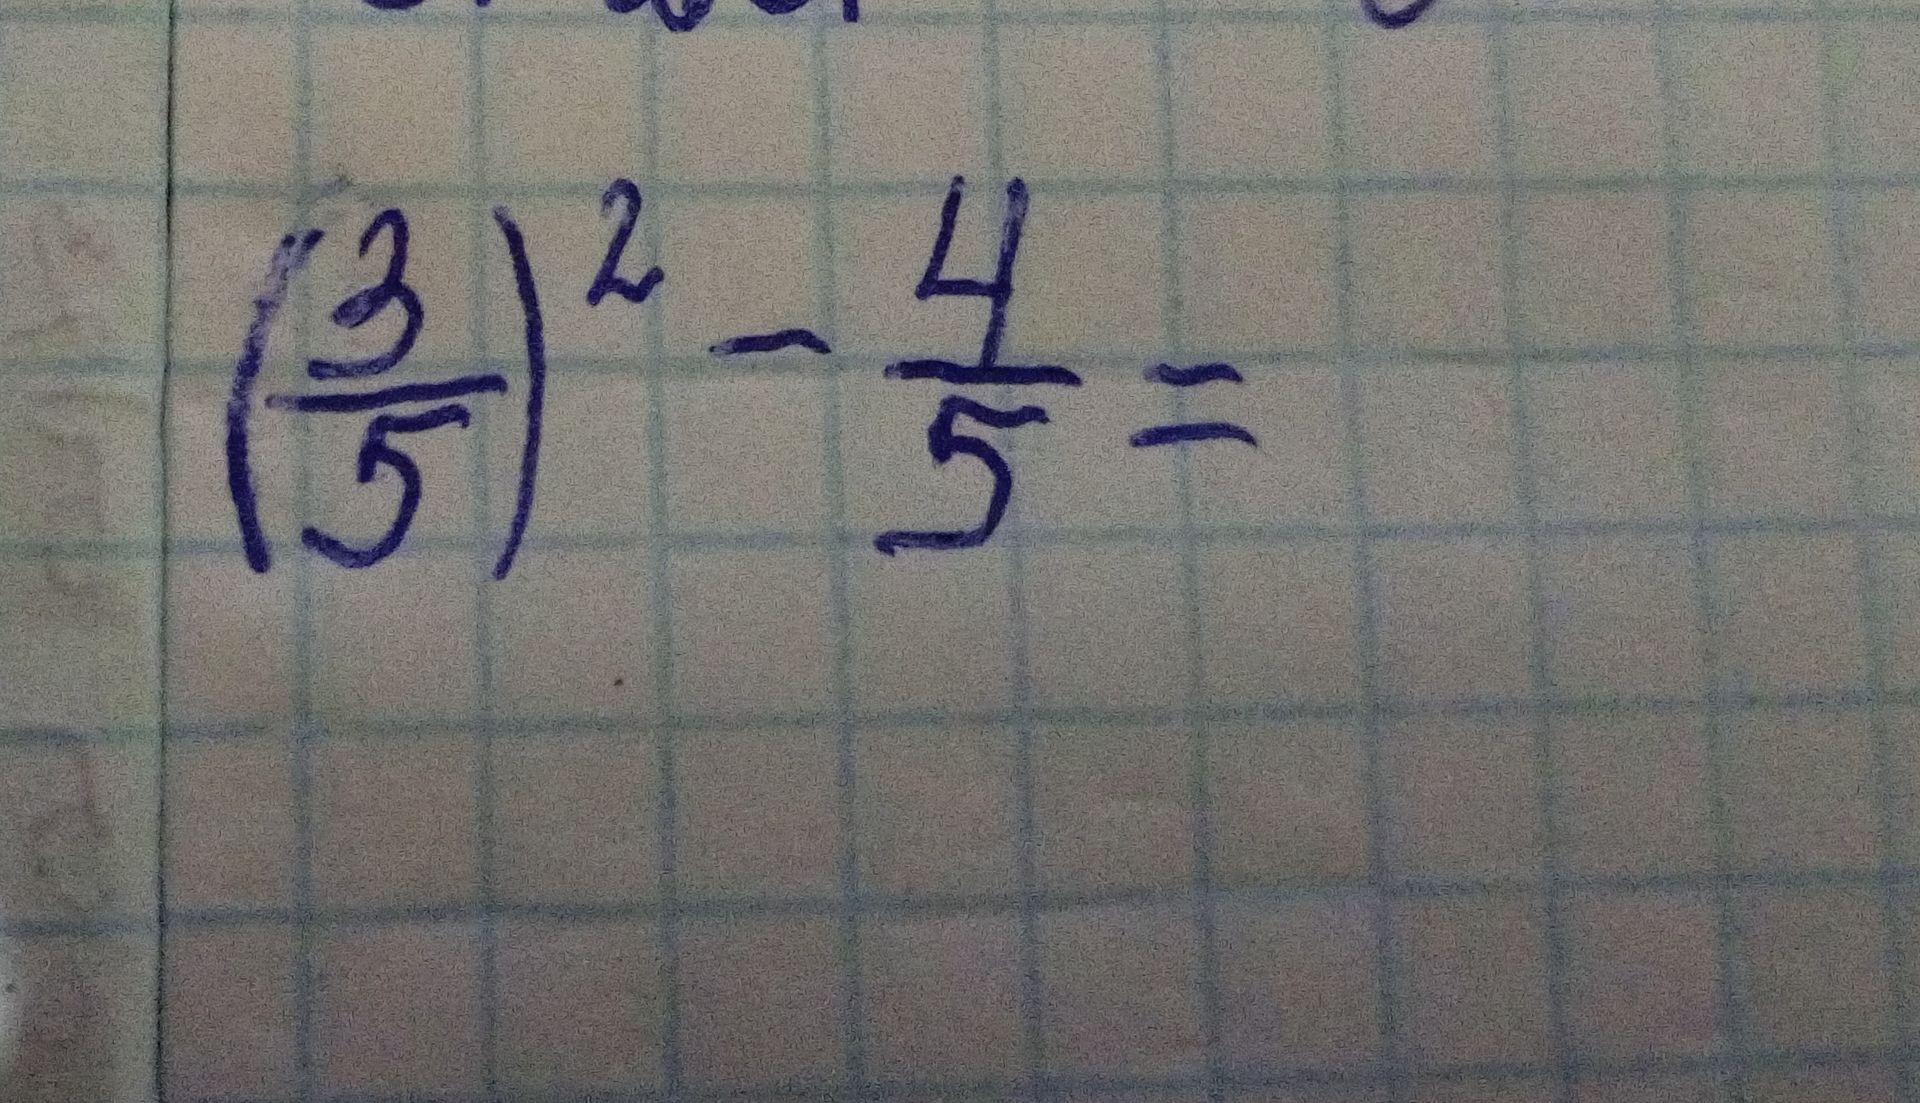 (3/5)² - 4/5 =